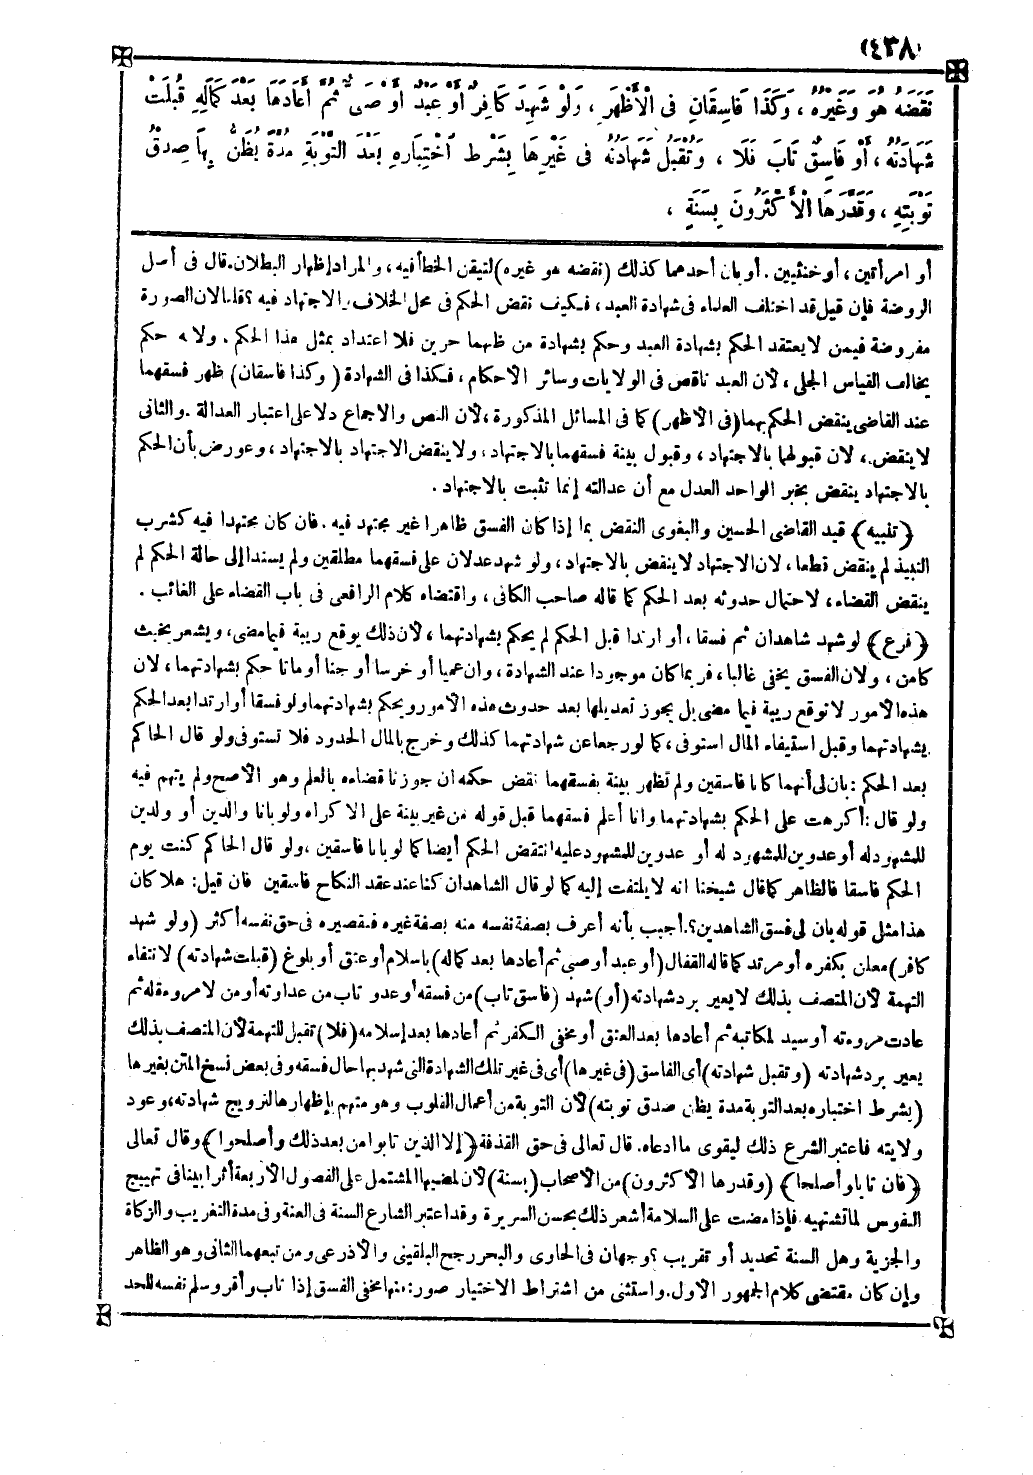 (٤٣٨)
نَقَضَهُ هُوَ وَغَيْرُهُ ، وَكَذَا فَاسِقَانِ فِى الْأَظْهَرِ ، وَلَوْ شَهِدَ كَافِرٌ أَوْ عَبْدٌ أَوْ صَبِىٌّ ثُمَّ أَعَادَهَا بَعْدَ كَمَالِهِ قُبِلَتْ
شَهَادَتُهُ ، أَوْ فَاسِقٌ تَابَ فَلَا ، وَتُقْبَلُ شَهَادَتُهُ فِى غَيْرِهَا بِشَرْطِ اخْتِبَارِهِ بَعْدَ التَّوْبَةِ مُدَّةً يُظَنُّ بِهَا صِدْقُ
تَوْبَتِهِ ، وَقَدَّرَهَا الْأَكْثَرُونَ بِسَنَةٍ ،
أو امرأتين ، أو خنثيين . أو بان أحدهما كذلك (نقضه هو غيره) لتيقن الخطأ فيه ، والمراد إظهار البطلان. قال فى أصل
الروضة فإن قيل قد اختلف العلماء فى شهادة العبد ، فكيف نقض الحكم فى محل الخلاف والاجتهاد فيه ؟ قلنا لان الصورة
مفروضة فيمن لا يعتقد الحكم بشهادة العبد وحكم بشهادة من ظنهما حرين فلا اعتداد بمثل هذا الحكم . ولانه حكم
يخالف القياس الجلى ، لأن العبد ناقص فى الولايات وسائر الأحكام ، فكذا فى الشهادة (وكذا فاسقان) ظهر فسقهما
عند القاضى ينقض الحكم بهما (فى الأظهر) كما فى المسائل المذكورة ، لأن النص والاجماع دلا على اعتبار العدالة . والثانى
لا ينقض ، لان قبولهما بالاجتهاد ، وقبول بينة فسقهما بالاجتهاد ، ولا ينقض الاجتهاد بالاجتهاد ، وعورض بأن الحكم
بالاجتهاد ينقض بخبر الواحد العدل مع أن عدالته إنما تثبت بالاجتهاد .
﴿تنبيه﴾ قيد القاضى الحسين والبغوى النقض بما إذا كان الفسق ظاهرا غير مجتهد فيه . فان كان مجتهدا فيه كشرب
النبيذ لم ينقض قطعا ، لان الاجتهاد لا ينقض بالاجتهاد ، ولو شهد عدلان على فسقهما مطلقين ولم يسندا إلى حالة الحكم لم
ينقض القضاء ، لاحتمال حدوثه بعد الحكم كما قاله صاحب الكافى ، واقتضاه كلام الرافعى فى باب القضاء على الغائب .
﴿فرع﴾ لو شهد شاهدان ثم فسقا ، أو ارتدا قبل الحكم لم يحكم بشهادتهما ، لأن ذلك يوقع ريبة فيما مضى، ويشعر بخبث
كامن ، ولان الفسق يخفى غالبا ، فربما كان موجودا عند الشهادة ، وان عميا أو خرسا أو جنا أو ماتا حكم بشهادتهما ، لان
هذه الأمور لا توقع ريبة فيما مضى بل يجوز تعديلهما بعد حدوث هذه الأمور ويحكم بشهادتهما ولو فسقا أو ارتدا بعد الحكم
بشهادتهما وقبل استيفاء المال استوفى ، كما لو رجعا عن شهادتهما كذلك وخرج بالمال الحدود فلا تستوفى ولو قال الحاكم
بعد الحكم : بان لى أنهما كانا فاسقين ولم تظهر بينة بفسقهما نقض حكمه ان جوزنا قضاءه بالعلم وهو الأصح ولم يتهم فيه
ولو قال : أكرهت على الحكم بشهادتهما وانا أعلم فسقهما قبل قوله من غير بينة على الاكراه ولو بانا والدين أو ولدين
للمشهود له أو عدوين للمشهود له أو عدوين للمشهود عليه انتقض الحكم أيضا كما لو بانا فاسقين ، ولو قال الحاكم كنت يوم
الحكم فاسقا فالظاهر كما قال شيخنا انه لا يلتفت إليه كما لو قال الشاهدان كنا عند عقد النكاح فاسقين فان قيل: هلا كان
هذا مثل قوله بان لى فسق الشاهدين؟. أجيب بأنه أعرف بصفة نفسه منه بصفة غيره فتقصيره فى حق نفسه أكثر (ولو شهد
كافر) معلن بكفره أو مرتد كما قاله القفال (أو عبد أو صبى ثم أعادها بعد كماله) باسلام أو عتق أو بلوغ (قبلت شهادته) لانتفاء
التهمة لأن المتصف بذلك لا يعير برد شهادته (أو) شهد (فاسق تاب) من فسقه أو عدو تاب من عداوته أو من لا مروءة له ثم
عادت مروءته أو سيد لمكاتبه ثم أعادها بعد العتق أو مخفى الكفر ثم أعادها بعد إسلامه (فلا) تقبل للتهمة لأن المتصف بذلك
يعير برد شهادته (وتقبل شهادته) أى الفاسق (فى غيرها) أى فى غير تلك الشهادة التى شهد بها حال فسقه وفى بعض نسخ المتن بغيرها
(بشرط اختباره بعد التوبة مدة يظن صدق توبته) لأن التوبة من أعمال القلوب وهو متهم بإظهارها لترويج شهادته، وعود
ولايته فاعتبر الشرع ذلك ليقوى ما ادعاه. قال تعالى فى حق القذفة ﴿إلا الذين تابوا من بعد ذلك وأصلحوا﴾ وقال تعالى
﴿فان تابا وأصلحا﴾ (وقدرها الأكثرون) من الأصحاب (بسنة) لأن لمضيها المشتمل على الفصول الأربعة أثرا بينا فى تهييج
النفوس لما تشتهيه فإذا مضت على السلامة أشعر ذلك بحسن السريرة وقد اعتبر الشارع السنة فى العنة وفى مدة التغريب والزكاة
والجزية وهل السنة تحديد أو تقريب ؟ وجهان فى الحاوى والبحر رجح البلقينى والأذرعى ومن تبعهما الثانى وهو الظاهر
وإن كان مقتضى كلام الجمهور الأول. واستثنى من اشتراط الاختبار صور: منها مخفى الفسق إذا تاب وأقر وسلم نفسه للحد